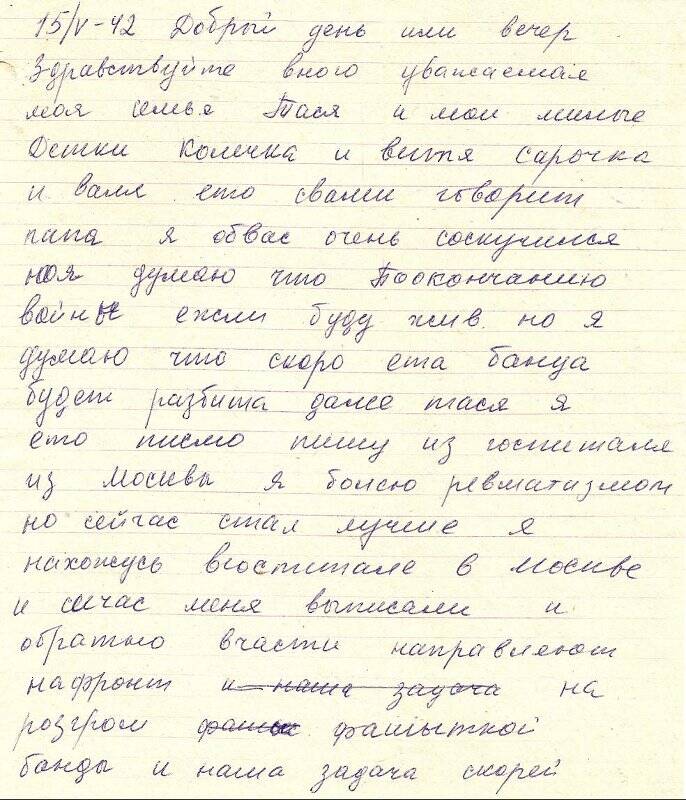 15/V-42 Добрый день или вечер
Здравствуйте вного уважаемая
моя семья Тася и мои милые
Детки Колечка и витя Сарочка
и валя ето свами говорит
папа я обвас очень соскучился
ноя думаю что Поокончанию
войны ежли буду жив но я
думаю что скоро ета банда
будет разбита даже тася я
ето писмо пишу из госпиталя
из Москвы я болею ревматизмом
но сейчас стал лучше я
нахожусь вгоспитале в Москве
и сичас меня выписали и
обратно вчасти направляют
нафронт и наша задача на
розгром фашыткой
банды и наша задача скорей